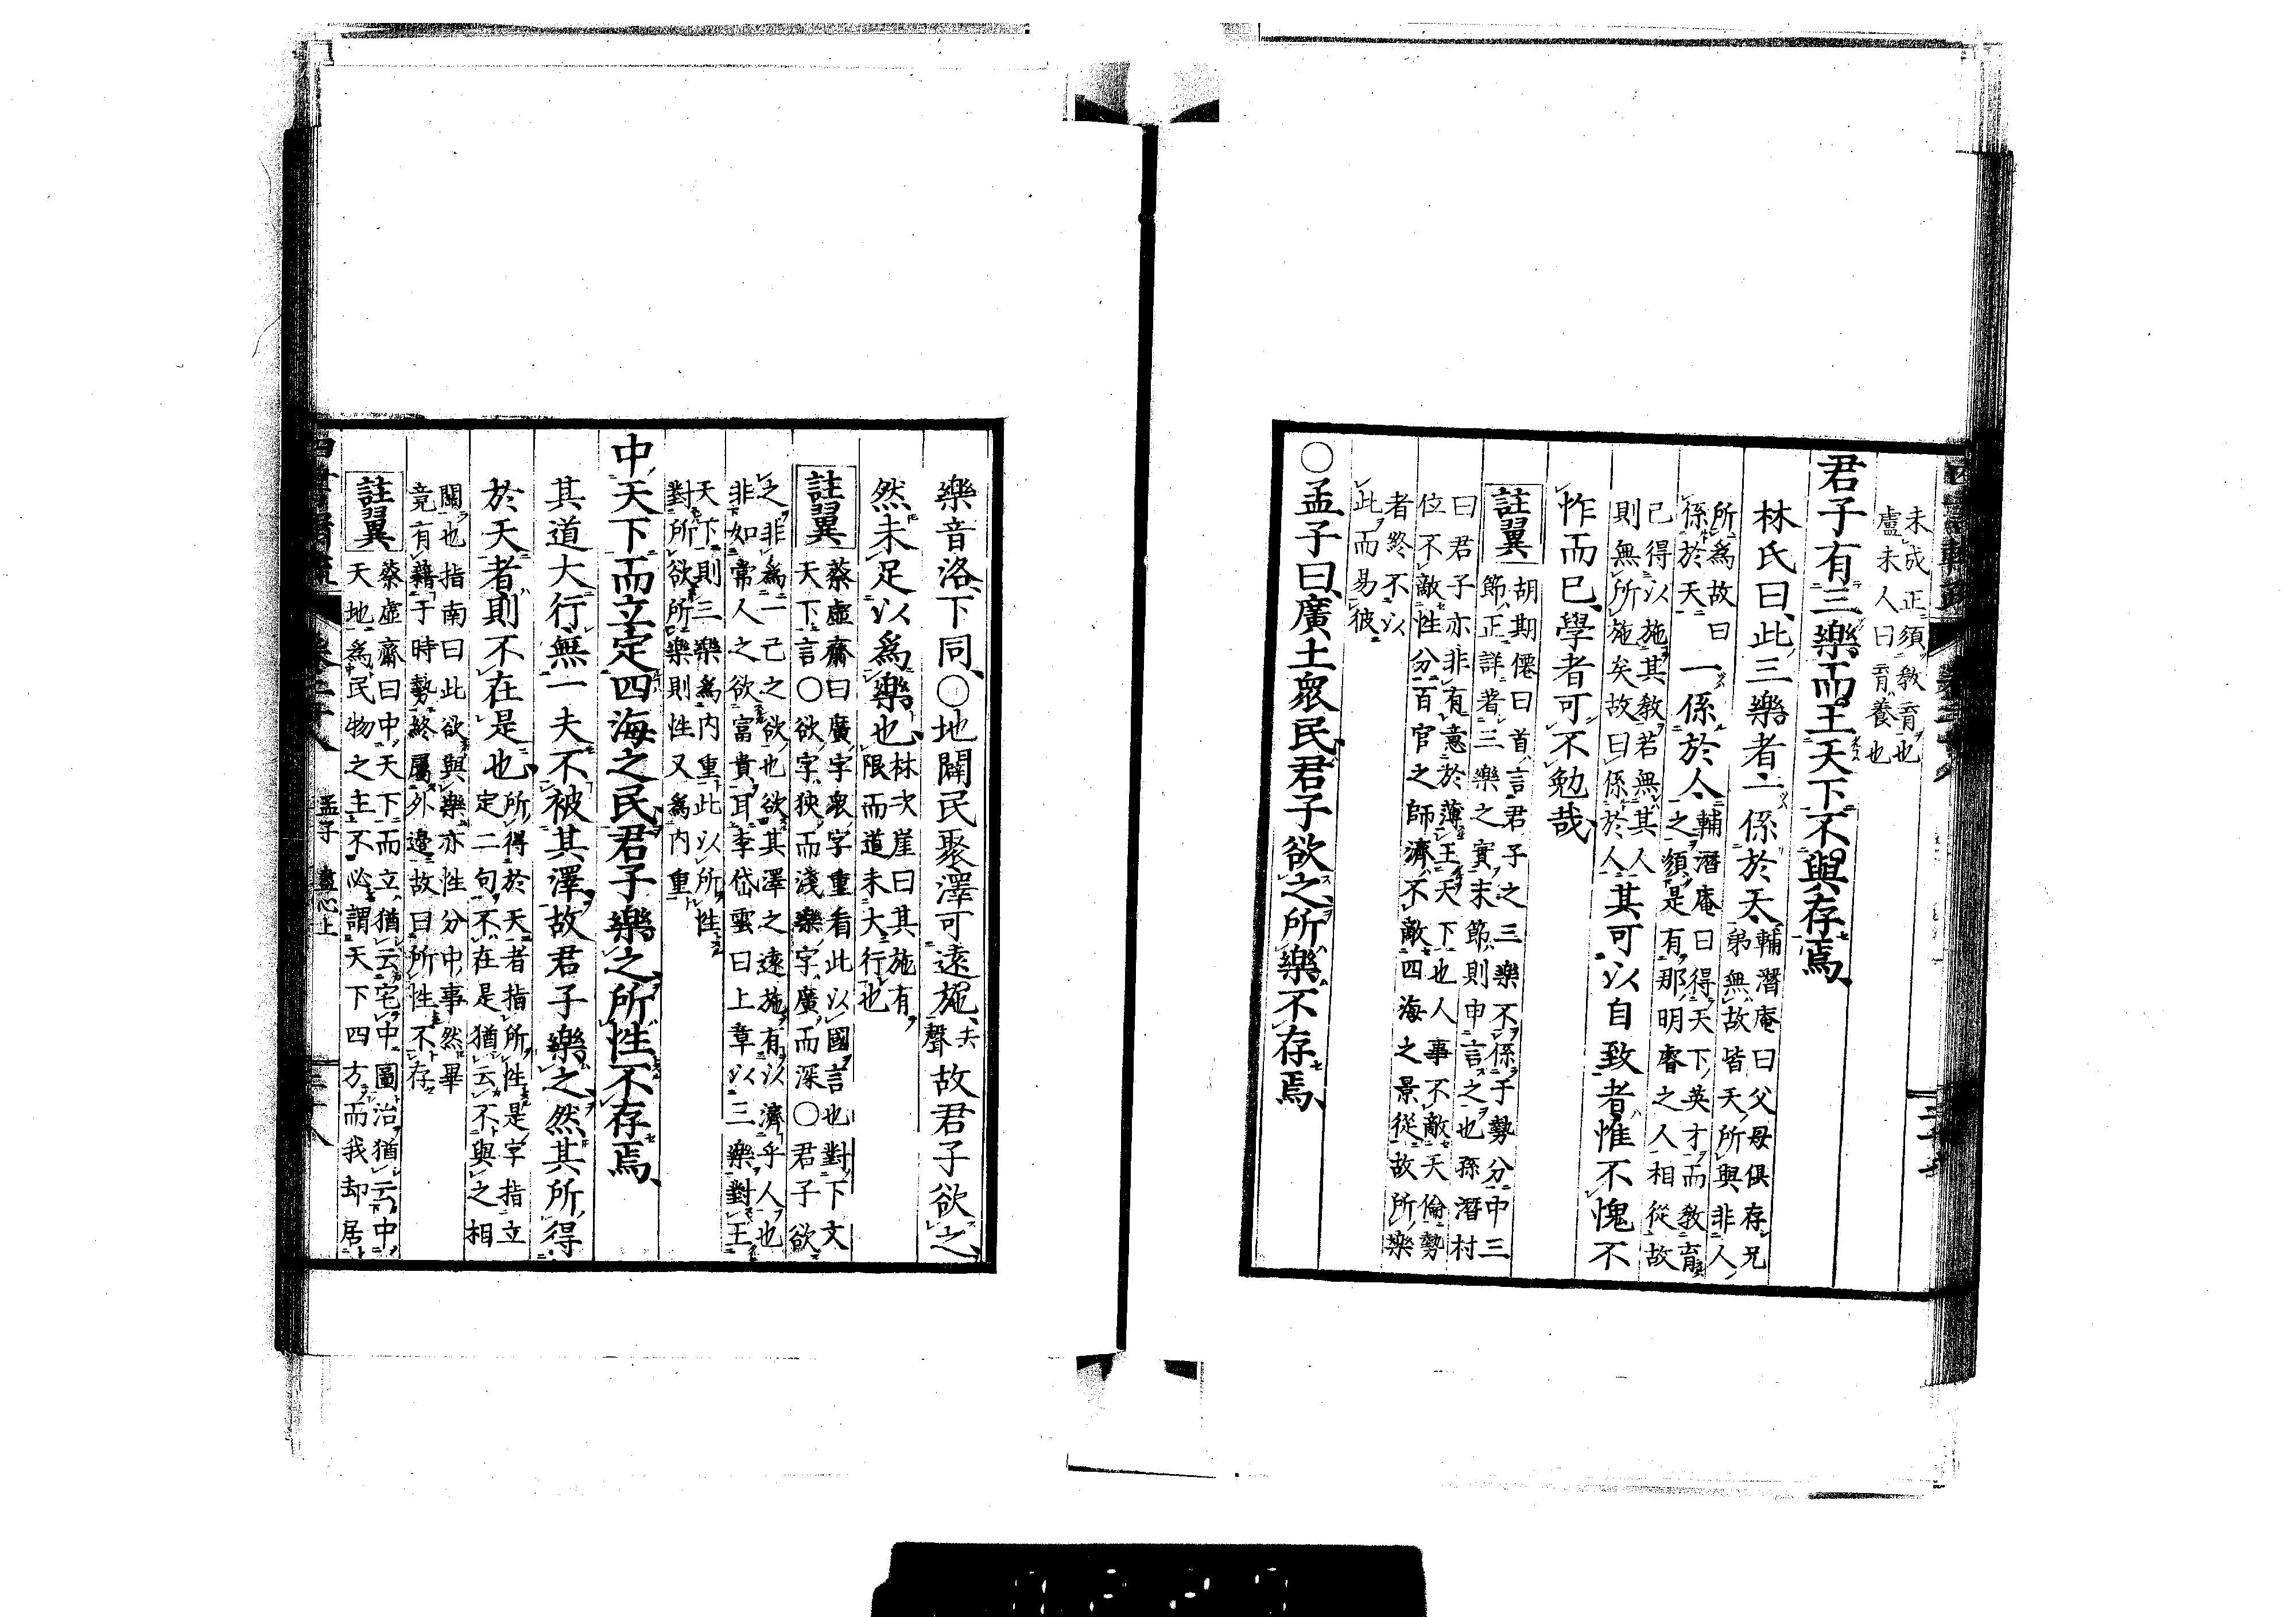 未成正須教育也
盧未人曰育養也
君子有三樂而王天下不與存焉
林氏曰此三樂者一係於天輔潛庵曰父母俱存兄
弟無故皆天所與非人
所為故曰
係於天
一係於人輔潛庵曰得天下英才而教育
之須是有那明睿之人相從故
己得以施其教若無其人
則無所施矣故曰係於人
其可以自致者惟不愧不
怍而已學者可不勉哉
註翼
胡期僊曰首言君子之三樂不係于勢分中三
節正詳著三樂之實末節則申言之也孫潛村
曰君子亦非有意於薄王天下也人事不敵天倫勢
位不敵性分百官之師濟不敵四海之景從故所樂
者終不以
此而易彼
○孟子曰廣土衆民君子欲之所樂不存焉
樂音洛下同○地闢民聚澤可遠施去聲故君子欲之
然未足以爲樂也林次崖曰其施有
限而道未大行也
註翼
蔡虛齋曰廣字衆字重看此以國言也對下文
天下言○欲字狹而淺樂字廣而深○君子欲
之非爲一己之欲也欲其澤之遠施有以濟乎人也
非如常人之欲富貴耳李岱雲曰上章以三樂對王
天下則三樂爲内重此以所性
對所欲所樂則性又爲内重
中天下而立定四海之民君子樂之所性不存焉
其道大行無一夫不被其澤故君子樂之然其所得
於天者則不在是也所得於天者指所性是字指立
定二句不在是猶云不與之相
關也指南曰此欲與樂亦性分中事然畢
竟有藉于時勢終屬外邊故曰所性不存
註翼
蔡虛齋曰中天下而立猶云宅中圖治猶云中
天地爲民物之主不必謂天下四方而我却居
孟子 盡心上